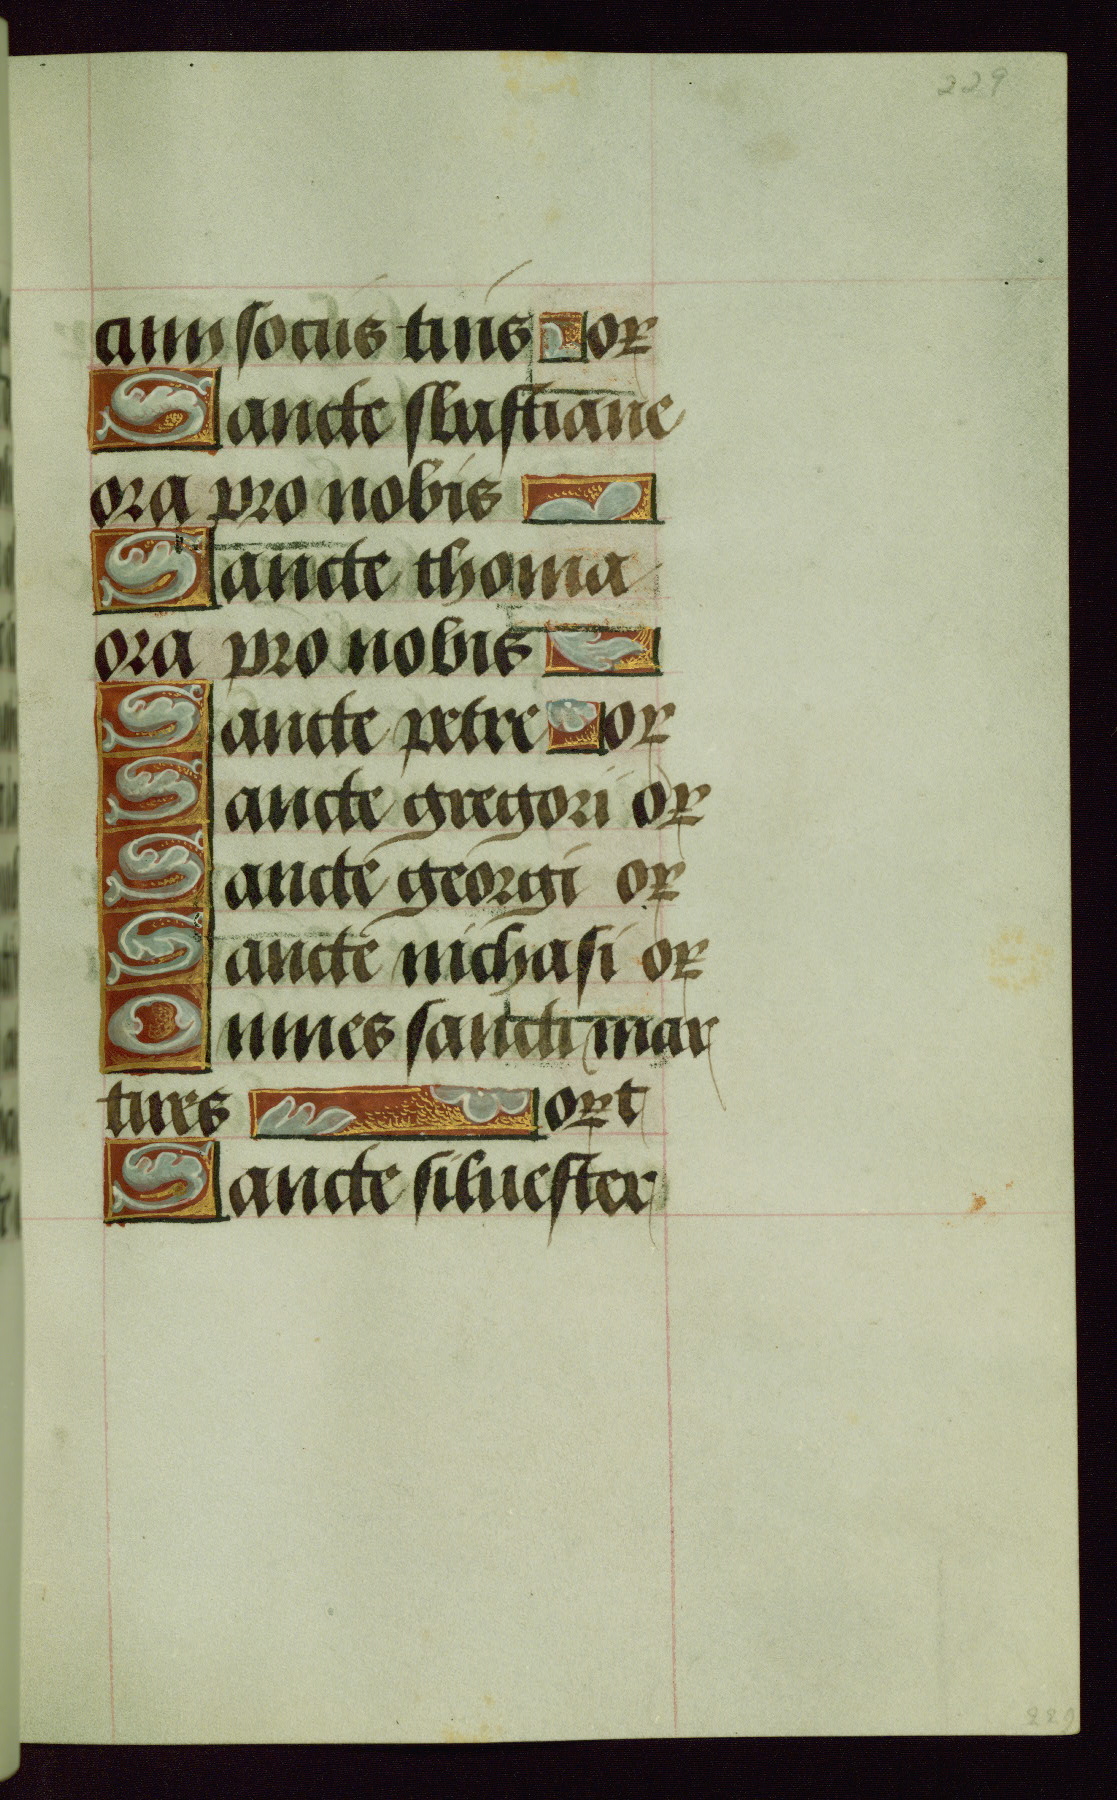 229
cum sociis tuis or
Sancte slustiane
ora pro nobis
Sancte thoma
ora pro nobis
Sancte petre or
Sancte gregori or
Sancte georgi or
Sancte nichasi or
Omnes sancti mar
tires ort
Sancte siluester
229